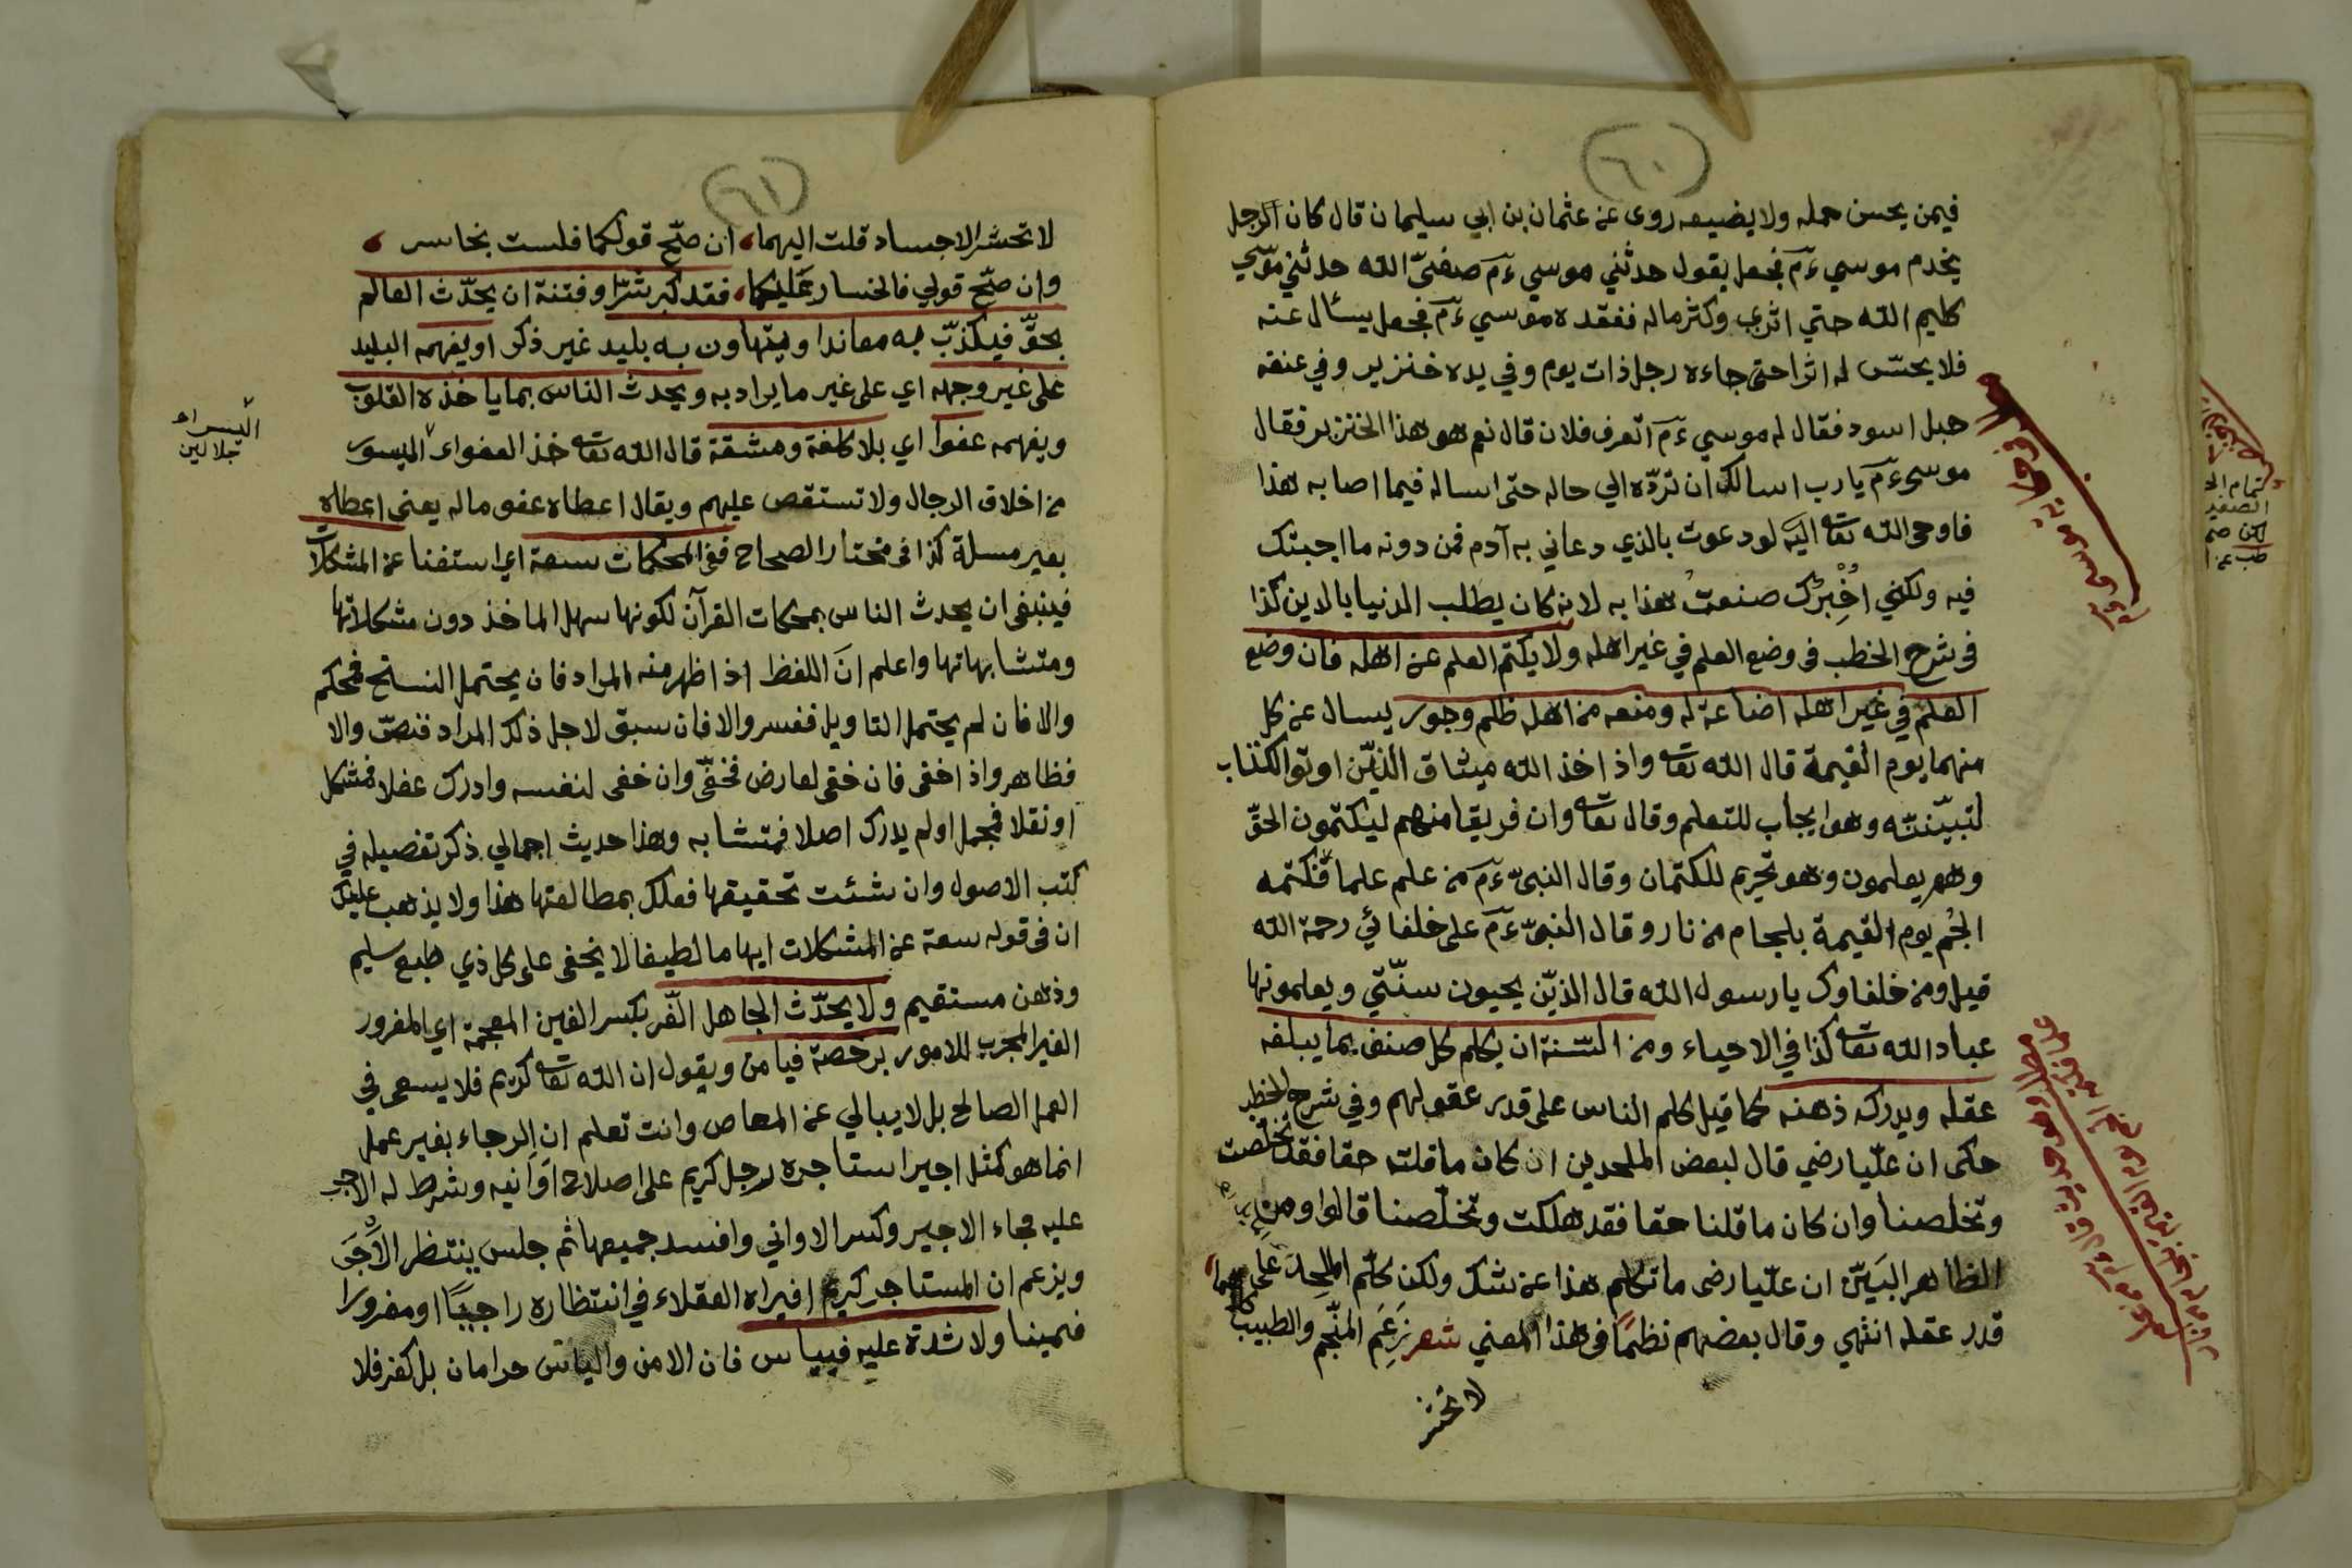 (٦٠)
فيمن يحسن حمله ولا يضيعه روى عن عثمان بن ابي سليمان قال كان الرجل
يخدم موسي ءم فجعل يقول حدثني موسي ءم صفيّ الله حدثني موسي
كليم الله حتي اثري وكثر ماله ففقده موسي ءم فجعل يسأل عنه
فلا يحسّ له اثرا حتى جاءه رجل ذات يوم وفي يده خنزير وفي عنقه
حبل اسود فقال له موسي ءم اتعرف فلان قال نعم هو هذا الخنزير فقال
موسى ءم يا رب اسالك ان تردّه الي حاله حتى اساله فيما اصابه هذا
فاوحى الله تعا اليه لو دعوت بالذي دعاني به آدم فمن دونه ما اجبتك
فيه ولكني اخبرك صنعت هذا به لانه كان يطلب الدنيا بالدين كذا
فى شرح الخطب فى وضع العلم في غير اهله ولا يكتم العلم عن اهله فان وضع
العلم في غير اهله اضاعة له ومنعه من اهله ظلم وجور يسال عن كل
منهما يوم القيمة قال الله تعا واذ اخذ الله ميثاق الذين اوتوا الكتاب
لتبيّننّه وهو ايجاب للتعلم وقال تعا وان فريقا منهم ليكتمون الحقّ
وهم يعلمون وهو تحريم للكتمان وقال النبيّ ءم من علم علما فكتمه
الجم يوم القيمة بلجام من نار وقال النبيّ ءم على خلفائي رحمة الله
قيل ومن خلفاوك يا رسول الله قال الذين يحيون سنّتي ويعلمونها
عباد الله تعا كذا في الاحياء ومن السّنة ان يكلم كل صنف بما يبلغه
عقله ويدركه ذهنه كما قيل كلم الناس على قدر عقولهم وفي شرح الخطب
حكى ان عليّا رضي قال لبعض الملحدين ان كان ما قلته حقا فقد تخلصت
وتخلصنا وان كان ما قلنا حقا فقد هلكت وتخلّصنا قالوا ومن
الظاهر البيّن ان عليّا رضى ما تكلم هذا عن شك ولكن كلّم الملحد على
قدر عقله انتهي وقال بعضهم نظمًا فى هذا المعني شعر زعم المنّجم والطبيب كلاهما
لا تحشر
(٦١)
لا تحشر الاجساد قلت اليهما، ان صحّ قولكما فلست بخاسر ،
وان صحّ قولي فالخسار عليكما، فقد كبر شرّا وفتنة ان يحدّث العالم
بحقّ فيكذّب به معاندا ويتهاون به بليد غير ذكر او يفهمه البليد
على غير وجهه اي على غير ما يراد به ويحدث الناس بما ياخذه القلوب
ويفهمه عفوا اي بلا كلفة ومشقة قال الله تعا خذ العفو اى الميسور
من اخلاق الرجال ولا تستقص عليهم ويقال اعطاه عفو ماله يعني اعطاه
بغير مسلة كذا فى مختار الصحاح ففى المحكمات سعة اي استغنا عن المشكلات
فينبغى ان يحدث الناس بمحكمات القرآن لكونها سهل الماخذ دون مشكلاتها
ومتشابهاتها واعلم انّ اللفظ اذا ظهر منه المراد فان يحتمل النسخ فمحكم
والا فان لم يحتمل التاويل ففسر والا فان سبق لاجل ذلك المراد فنصّ والا
فظاهر واذا خفى فان خفى لعارض فخفيّ وان خفى لنفسه وادرك عقلا فمشكل
او نقلا فمجمل او لم يدرك اصلا فمتشابه وهذا حديث اجمالي ذكر تفصيله في
كتب الاصول وان شئت تحقيقها فعلك بمطالعتها هذا ولا يذهب عليك
ان فى قوله سعة عن المشكلات ايهاما لطيفا لا يخفى على كل ذي طبع سليم
وذهن مستقيم ولا يحدّث الجاهل الغّر بكسر الغين المعجمة اي المغرور
الغير المجرب للامور برخصة فيامن ويقول ان الله تعا كريم فلا يسعى في
العمل الصالح بل لا يبالي عن المعاص وانت تعلم ان الرجاء بغير عمل
انما هو كمثل اجير استاجره رجل كريم على اصلاح اوانيه وشرط له الاجر
عليه فجاء الاجير وكسر الاواني وافسد جميعها ثم جلس ينتظر الاجر
ويزعم ان المستاجر كريم افيراه العقلاء في انتظاره راجيًا او مغرورا
متمينا ولا شدة عليه فيياس فان الامن والياس حرامان بل كفر فلا
اليسر اه
جلالين